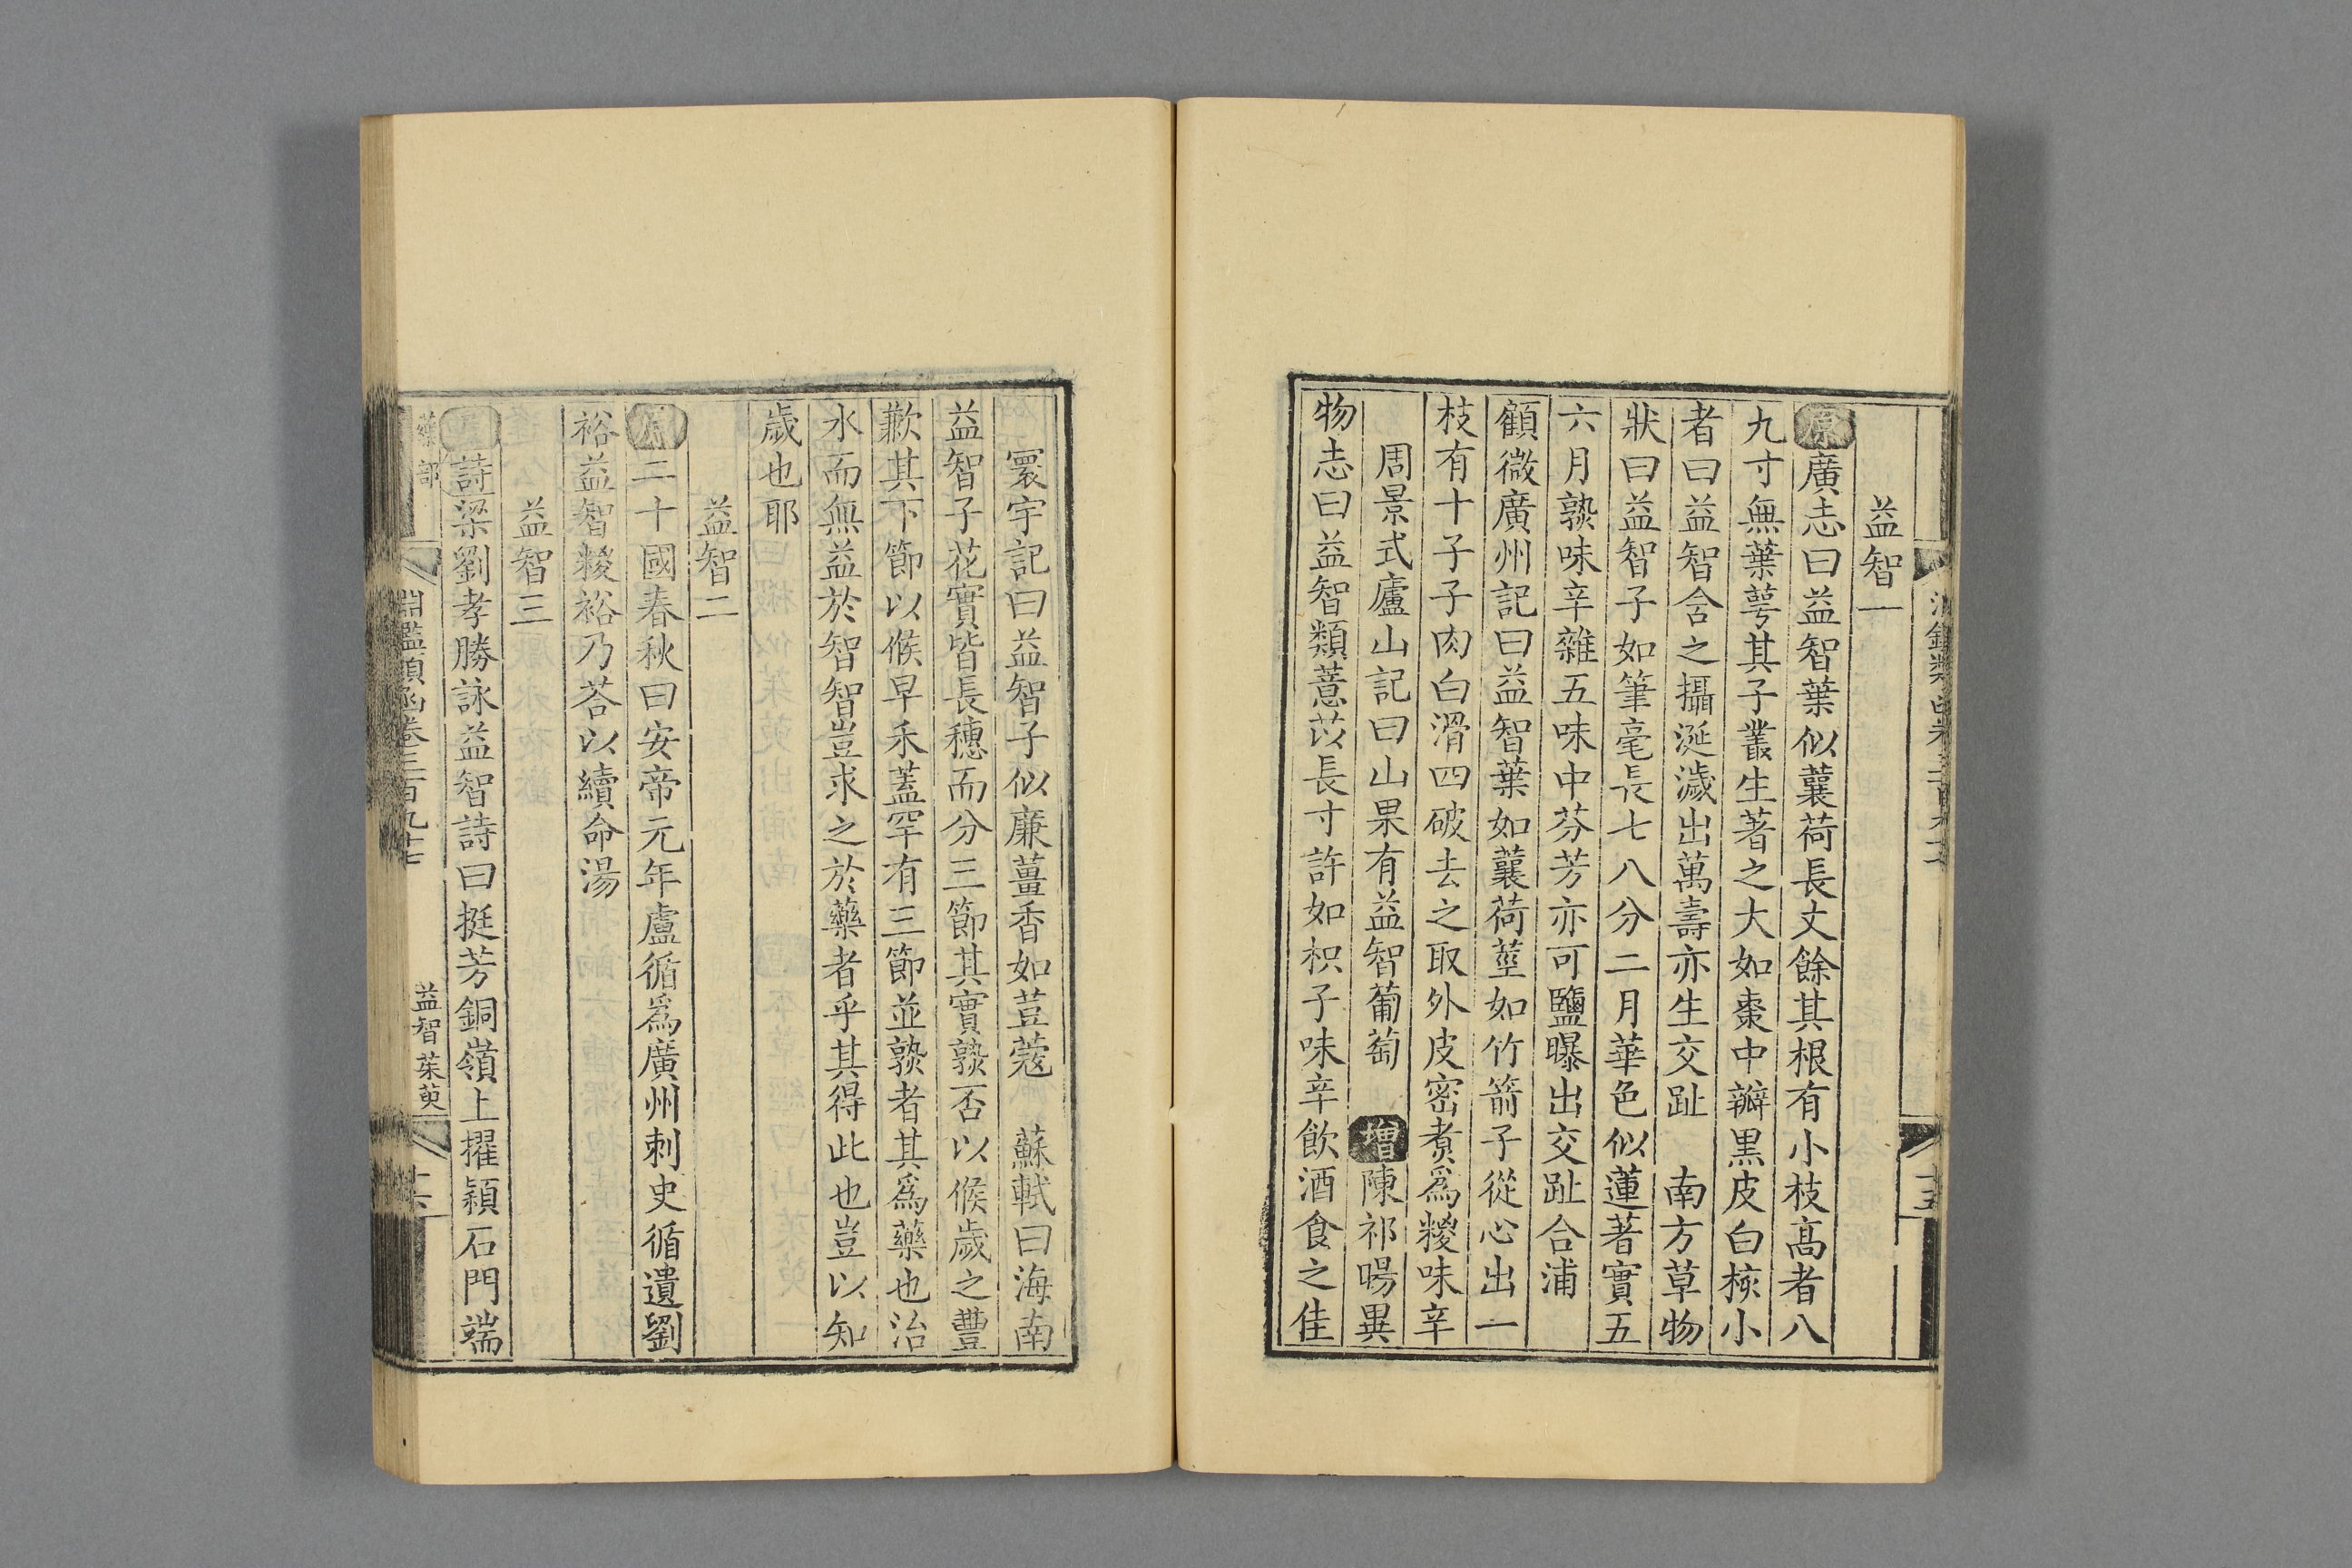 益智一
原廣志曰益智葉似蘘荷長丈餘其根有小枝高者八
九寸無葉萼其子叢生著之大如棗中瓣黒皮白核小
者曰益智含之攝涎濊出萬壽亦生交趾　南方草物
狀曰益智子如筆毫長七八分二月華色似蓮著實五
六月熟味辛雜五味中芬芳亦可鹽曝出交趾合浦
顧微廣州記曰益智葉如蘘荷莖如竹箭子從心出一
枝有十子子肉白滑四破去之取外皮密煮爲糉味辛
周景式廬山記曰山果有益智葡萄　增陳祁暘異
物志曰益智類薏苡長寸許如枳子味辛飲酒食之佳
寰宇記曰益智子似廉薑香如荳蔻　蘇軾曰海南
益智子花實皆長穗而分三節其實熟否以候歲之豐
歉其下節以候早禾蓋罕有三節並熟者其爲藥也治
水而無益於智智豈求之於藥者乎其得此也豈以知
歲也耶
益智二
二十國春秋曰安帝元年盧循爲廣州刺史循遺劉
裕益智糉裕乃荅以續命湯
益智三
詩梁劉孝勝詠益智詩曰挺芳銅嶺上擢穎石門端
藥部
淵鑑類函卷三百九十七
益智茱萸
十六